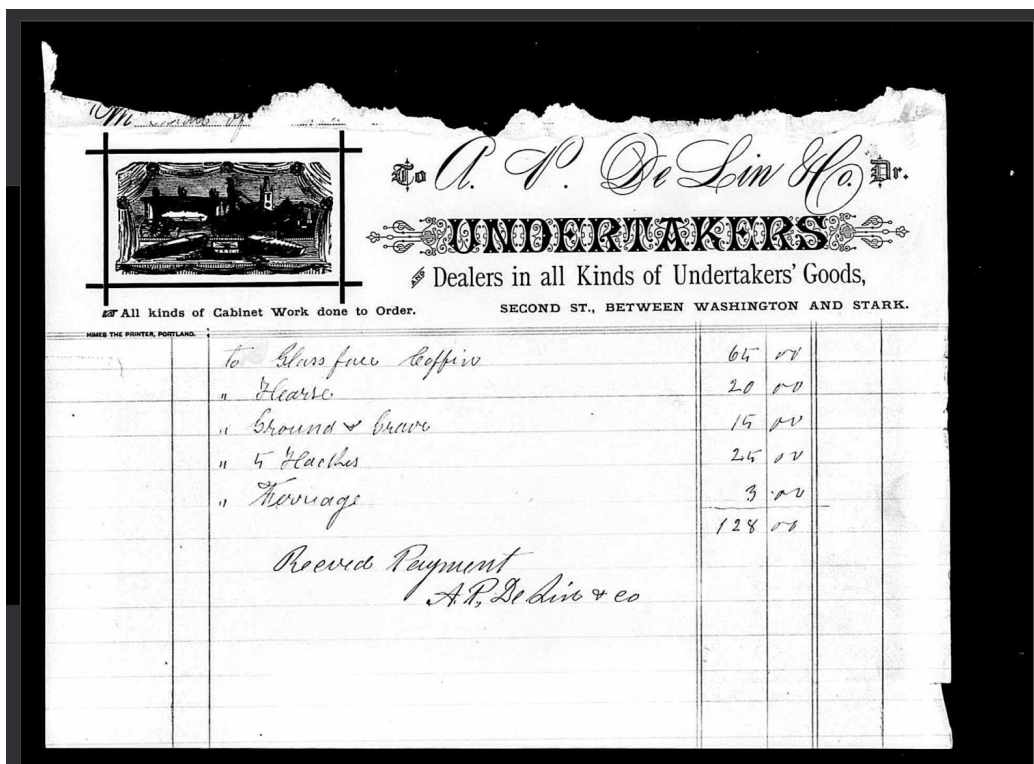 M
To A. P. De Lin & Co. Dr.
UNDERTAKERS
AND Dealers in all Kinds of Undertakers' Goods,
All kinds of Cabinet Work done to Order.
SECOND ST., BETWEEN WASHINGTON AND STARK.
HIMES THE PRINTER, PORTLAND.
to Glass face Coffin 65 00
" Hearse 20 00
" Ground & Grave 15 00
" 5 Hackes 25 00
" Ferriage 3 00
128 00
Recved Payment
A. P. De Lin & co